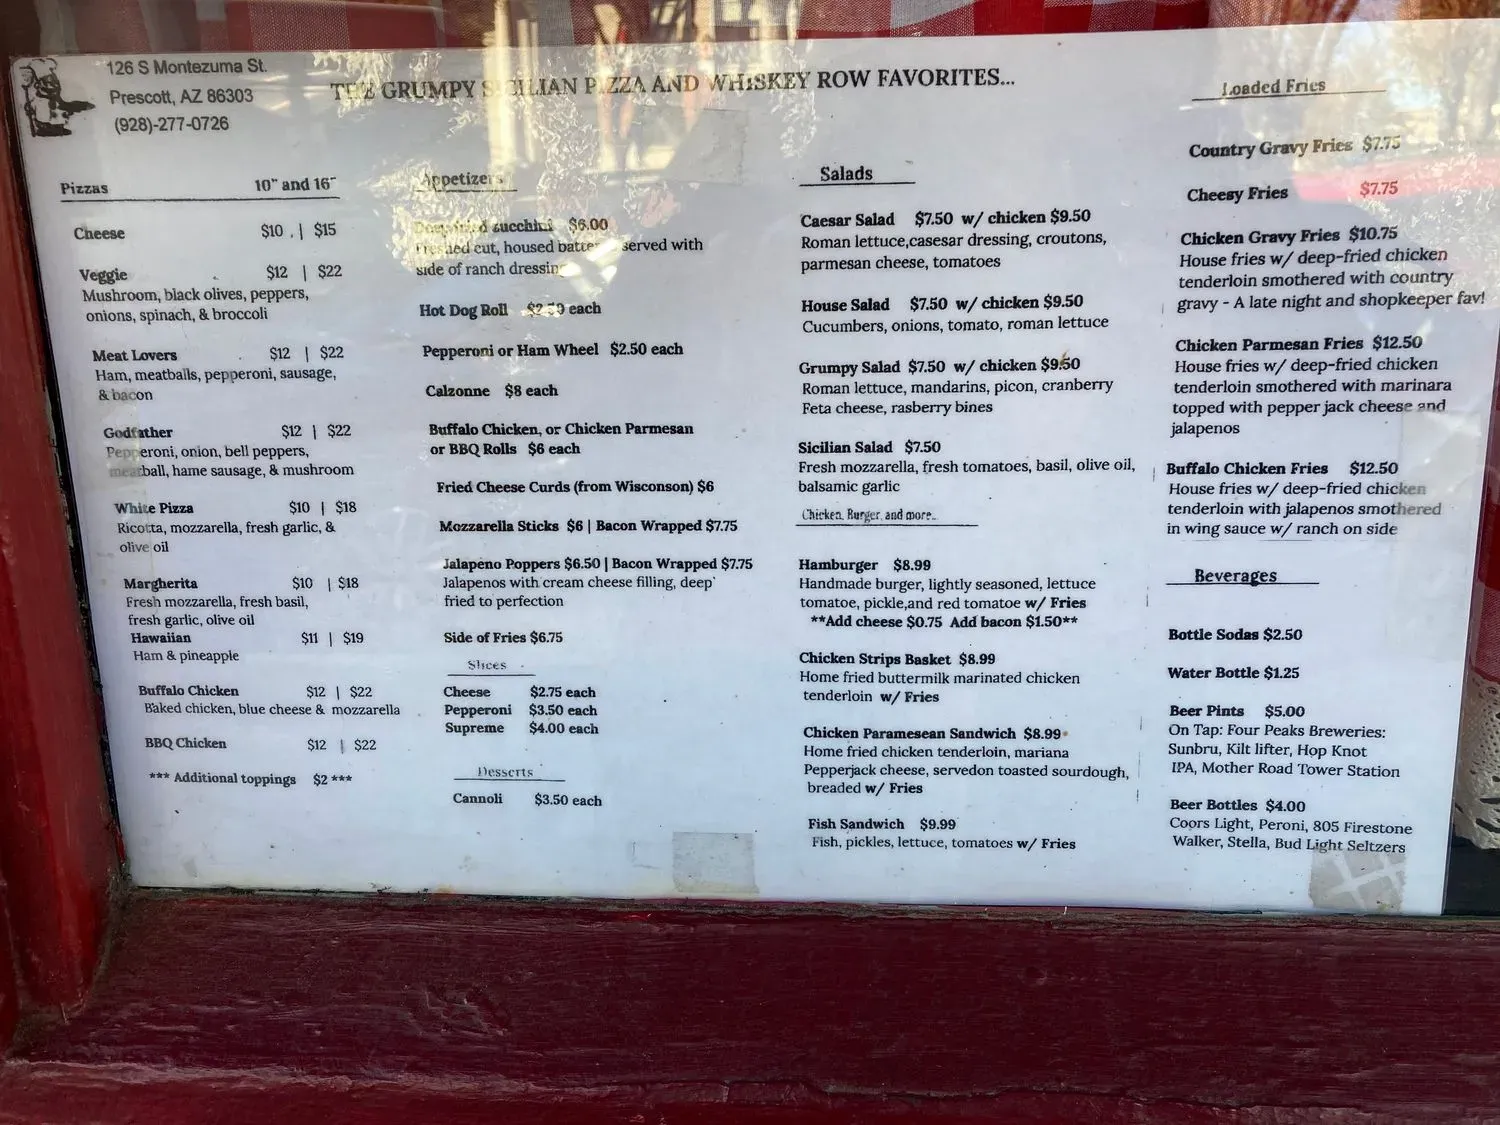 126 S Montezuma St.
Prescott, AZ 86303
(928)-277-0726
THE GRUMPY SICILIAN PIZZA AND WHISKEY ROW FAVORITES...
Pizzas 10" and 16"
Cheese $10 | $15
Veggie $12 | $22
Mushroom, black olives, peppers,
onions, spinach, & broccoli
Meat Lovers $12 | $22
Ham, meatballs, pepperoni, sausage,
& bacon
Godfather $12 | $22
Pepperoni, onion, bell peppers,
meatball, hame sausage, & mushroom
White Pizza $10 | $18
Ricotta, mozzarella, fresh garlic, &
olive oil
Margherita $10 | $18
Fresh mozzarella, fresh basil,
fresh garlic, olive oil
Hawaiian $11 | $19
Ham & pineapple
Buffalo Chicken $12 | $22
Baked chicken, blue cheese & mozzarella
BBQ Chicken $12 | $22
*** Additional toppings $2 ***
Appetizers
zucchini $6.00
cut, housed served with
side of ranch dressing
Hot Dog Roll each
Pepperoni or Ham Wheel $2.50 each
Calzonne $8 each
Buffalo Chicken, or Chicken Parmesan
or BBQ Rolls $6 each
Fried Cheese Curds (from Wisconson) $6
Mozzarella Sticks $6 | Bacon Wrapped $7.75
Jalapeno Poppers $6.50 | Bacon Wrapped $7.75
Jalapenos with cream cheese filling, deep
fried to perfection
Side of Fries $6.75
Slices
Cheese $2.75 each
Pepperoni $3.50 each
Supreme $4.00 each
Desserts
Cannoli $3.50 each
Salads
Caesar Salad $7.50 w/ chicken $9.50
Roman lettuce,casesar dressing, croutons,
parmesan cheese, tomatoes
House Salad $7.50 w/ chicken $9.50
Cucumbers, onions, tomato, roman lettuce
Grumpy Salad $7.50 w/ chicken $9.50
Roman lettuce, mandarins, picon, cranberry
Feta cheese, rasberry bines
Sicilian Salad $7.50
Fresh mozzarella, fresh tomatoes, basil, olive oil,
balsamic garlic
Chicken, Burger, and more...
Hamburger $8.99
Handmade burger, lightly seasoned, lettuce
tomatoe, pickle,and red tomatoe w/ Fries
**Add cheese $0.75 Add bacon $1.50**
Chicken Strips Basket $8.99
Home fried buttermilk marinated chicken
tenderloin w/ Fries
Chicken Paramesean Sandwich $8.99
Home fried chicken tenderloin, mariana
Pepperjack cheese, servedon toasted sourdough,
breaded w/ Fries
Fish Sandwich $9.99
Fish, pickles, lettuce, tomatoes w/ Fries
Loaded Fries
Country Gravy Fries $7.75
Cheesy Fries $7.75
Chicken Gravy Fries $10.75
House fries w/ deep-fried chicken
tenderloin smothered with country
gravy - A late night and shopkeeper fav!
Chicken Parmesan Fries $12.50
House fries w/ deep-fried chicken
tenderloin smothered with marinara
topped with pepper jack cheese and
jalapenos
Buffalo Chicken Fries $12.50
House fries w/ deep-fried chicken
tenderloin with jalapenos smothered
in wing sauce w/ ranch on side
Beverages
Bottle Sodas $2.50
Water Bottle $1.25
Beer Pints $5.00
On Tap: Four Peaks Breweries:
Sunbru, Kilt lifter, Hop Knot
IPA, Mother Road Tower Station
Beer Bottles $4.00
Coors Light, Peroni, 805 Firestone
Walker, Stella, Bud Light Seltzers